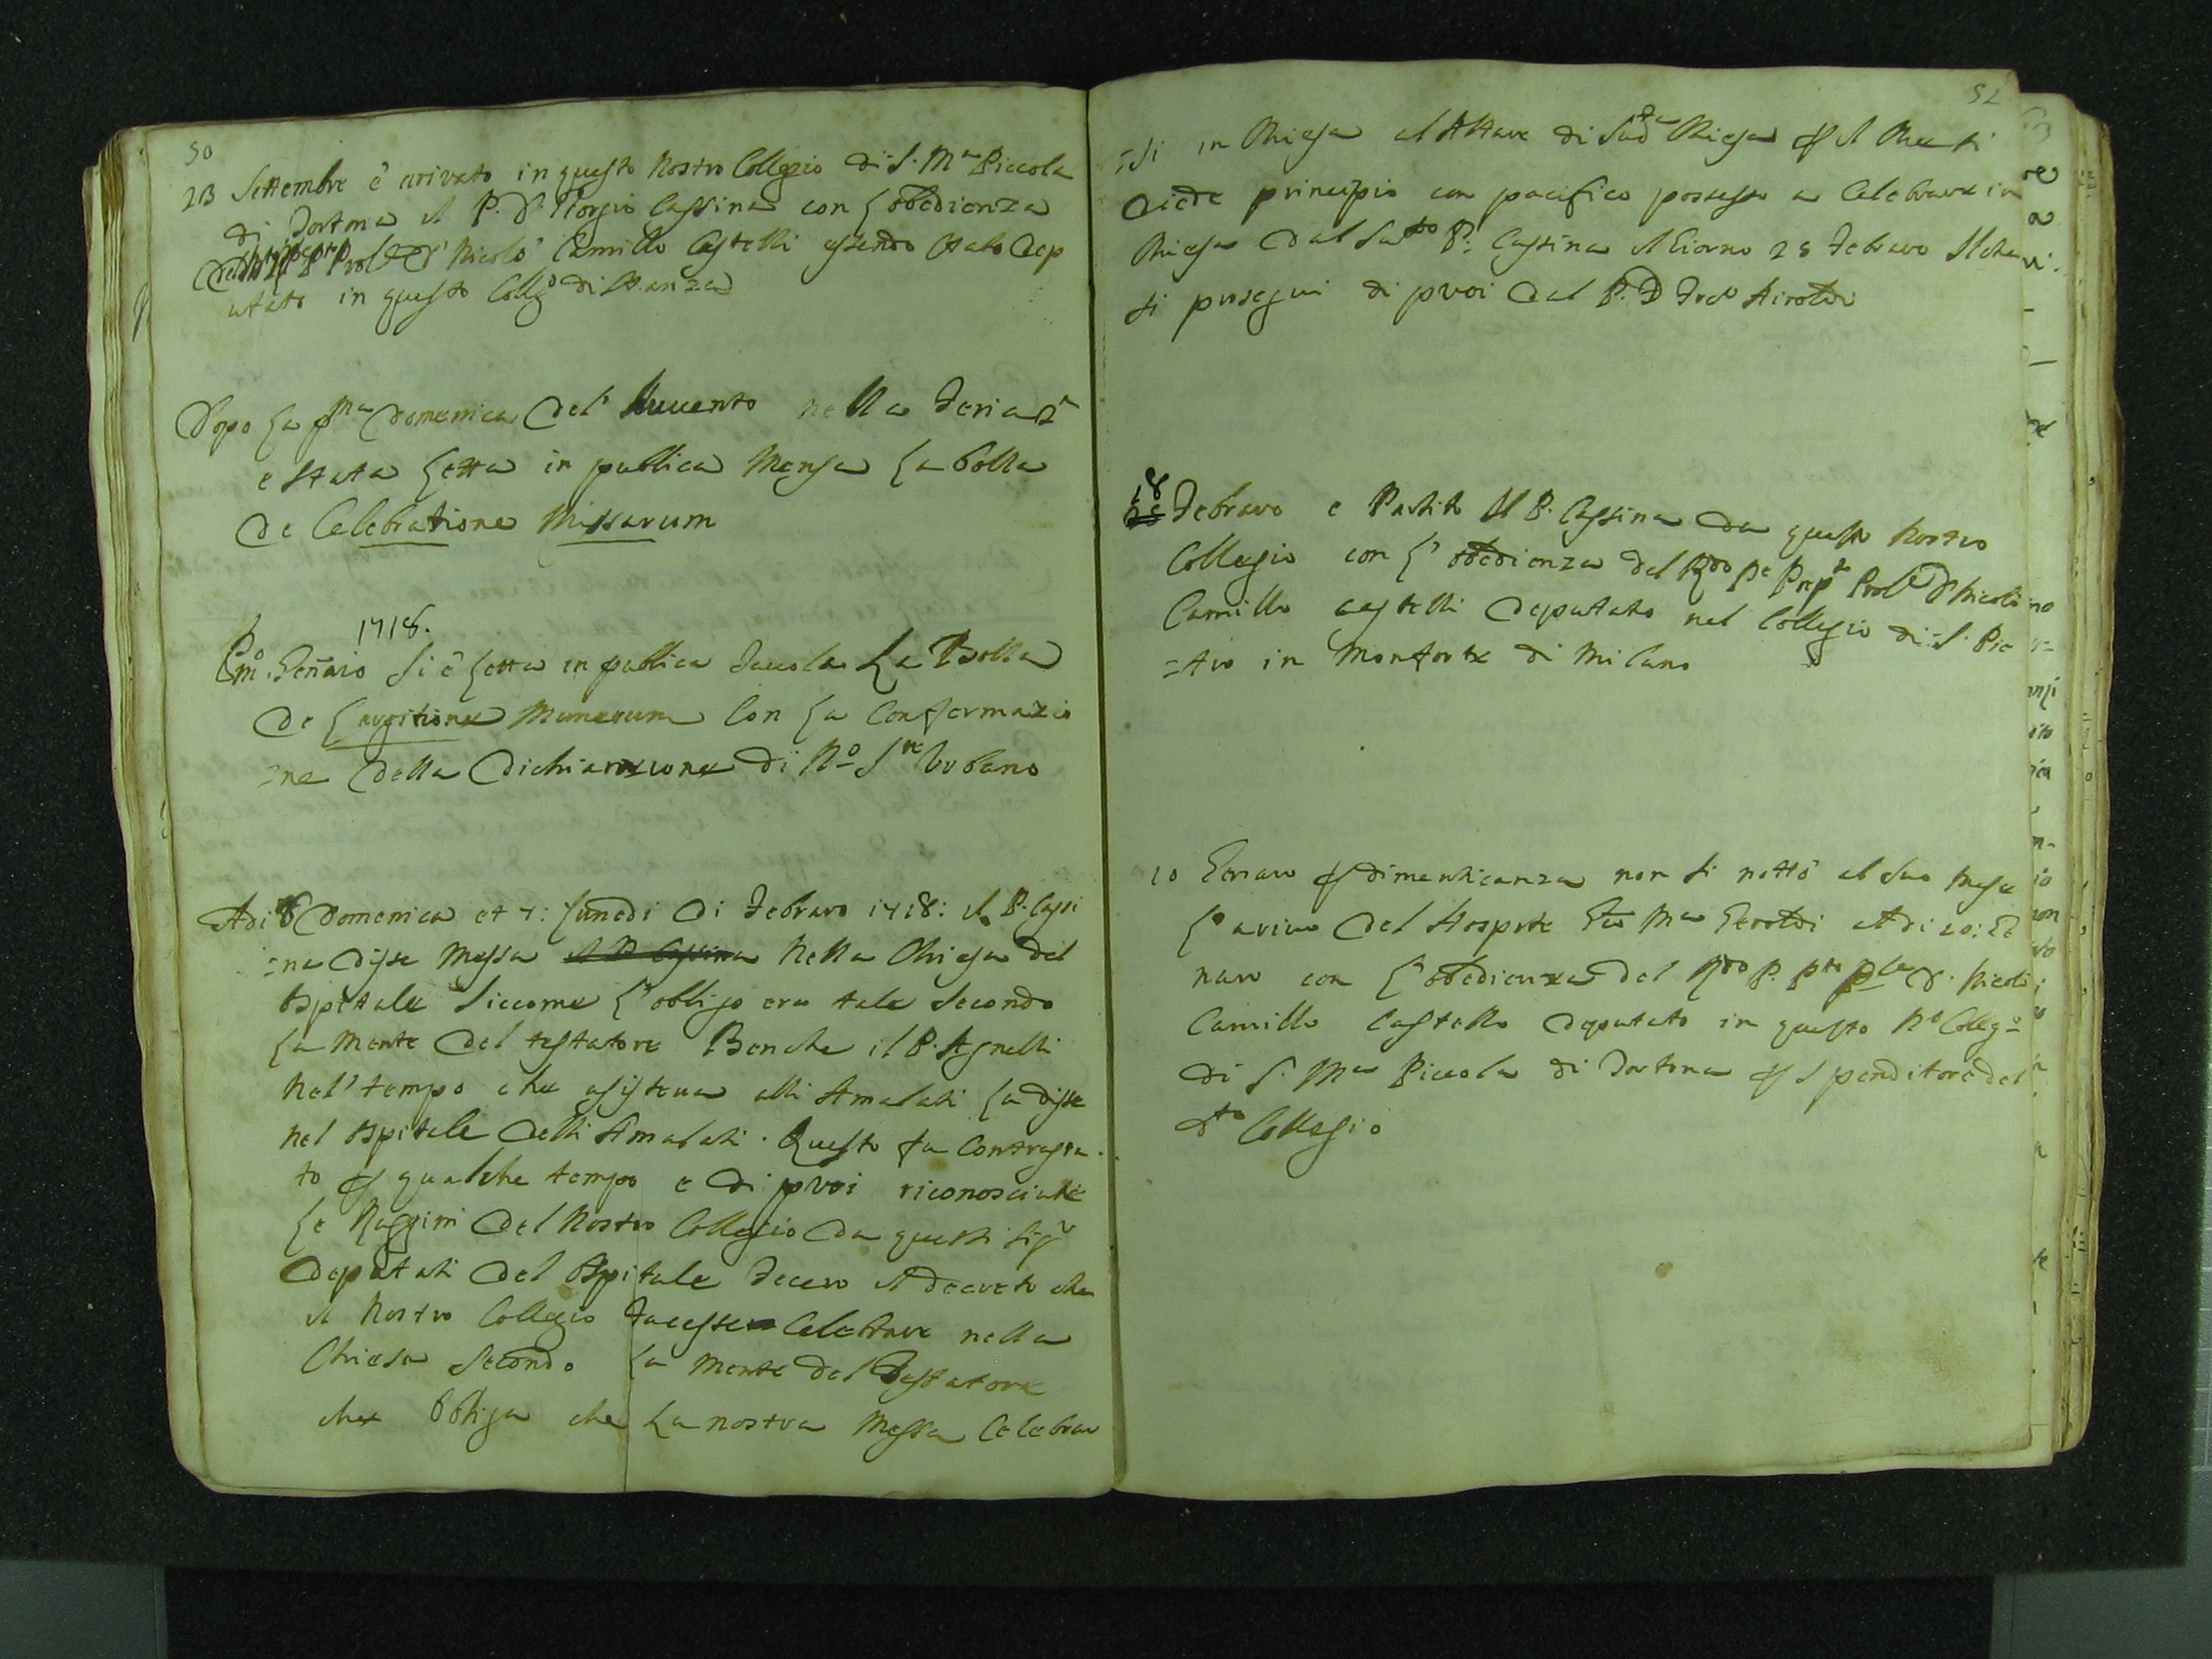 50
23 Settembre è arivato in questo Nostro Collegio di S. Mª Piccola
di Tortona il P. D. Giorgio Cassina con l'obedienza
Nicolò Camillo Castelli essendo stato dep
utato in questo Collgº di stanza
Dopo la pma Domenica del' Auuento nella Feria 2ª
e stata letta in publica Mensa la bolla
De Celebratione Missarum
1718.
Pmo. Genaio Si è letta in publica Tauola La Bolla
De Largitione Munerum Con la Confermazio
=ne della Dichiarazione di Nº Sre Vrbano
Adi 6 Domenica et 7: Lunedi di Febraro 1718: il P. Cassi
=na disse Messa il P. Cassina Nella Chiesa del
Ospitale Siccome l'obligo era tale Secondo
La Mente del testatore Benche il P. Agnelli
Nel' tempo che asisteua alli Amalati La disse
nel Ospitale delli Amalati. Questo fu Contrasta
to p qualche tempo e di pvoi riconosciute
le Raggini del Nostro Collegio da questi Sigr
Deputati del Ospitale Fecero il decreto che
il Nostro Collegio Facesse Celebrare nella
Chiesa Secondo La Mente del Testatore
che Obliga che La nostra Messa Celebra
51
=si in Chiesa al Altare di Sudª Chiesa p il che si
diede principio con pacifico possesso a Celebrare in
Chiesa dal Sudto P. Cassina il Giorno 25 Febraro Il che
si prosegui di pvoi dal P. D Airoldi
18 Febraro e Partito Il P. Cassina da questo Nostro
Collegio con l'obedienza del Rdo Pe Prepto Prole D Nicolo
Camillo Castelli deputato nel Collegio di S. Pie
=tro in Monforte di Milano
10 Genaro p dimenticanza non si nottò al suo Mese
l'arivo del Hospite Mª Geroldi Adi 10: Ge
naro con l'obedienza del Rdo P. Pto Ple D. Nicolò
Camillo Castello deputato in questo Nº Collegº
di S. Mª Piccola di Tortona p Spenditore del
dto Collegio